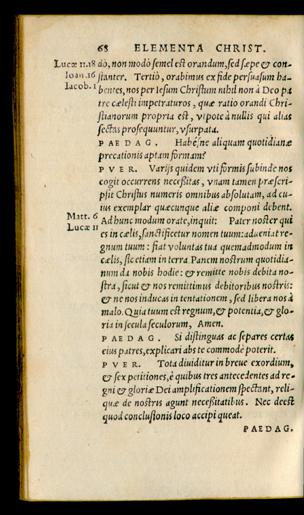 68 ELEMENTA CHRIST.
Lucæ 11.18 dò, non modò semel est orandum, sed sæpe & con-
Ioan. 16 stanter. Tertiò, orabimus ex fide persuasum ha-
Iacob. 1 bentes, nos per Iesum Christum nihil non à Deo pa
tre cælesti impetraturos, quæ ratio orandi Chri-
stianorum propria est, vtpote à nullis qui alias
sectas prosequuntur, vsurpata.
PAEDAG. Habé'ne aliquam quotidianæ
precationis aptam formam?
PVER. Varijs quidem vti formis subinde nos
cogit occurrens necessitas, vnam tamen præscri-
psit Christus numeris omnibus absolutam, ad cu-
ius exemplar quæcunque aliæ componi debent.
Matt. 6 Ad hunc modum orate, inquit: Pater noster qui
Lucæ 11 es in cælis, sanctificetur nomen tuum: adueniat re-
gnum tuum: fiat voluntas tua quemadmodum in
cælis, sic etiam in terra. Panem nostrum quotidia-
num da nobis hodie: & remitte nobis debita no-
stra, sicut & nos remittimus debitoribus nostris:
& ne nos inducas in tentationem, sed libera nos à
malo. Quia tuum est regnum, & potentia, & glo-
ria in secula seculorum, Amen.
PAEDAG. Si distinguas ac separes certas
eius partes, explicari abs te commodè poterit.
PVER. Tota diuiditur in breue exordium,
& sex petitiones, è quibus tres antecedentes ad re-
gni & gloriæ Dei amplificationem spectant, reli-
quæ de nostris agunt necessitatibus. Nec deest
quod conclusionis loco accipi queat.
PAEDAG.